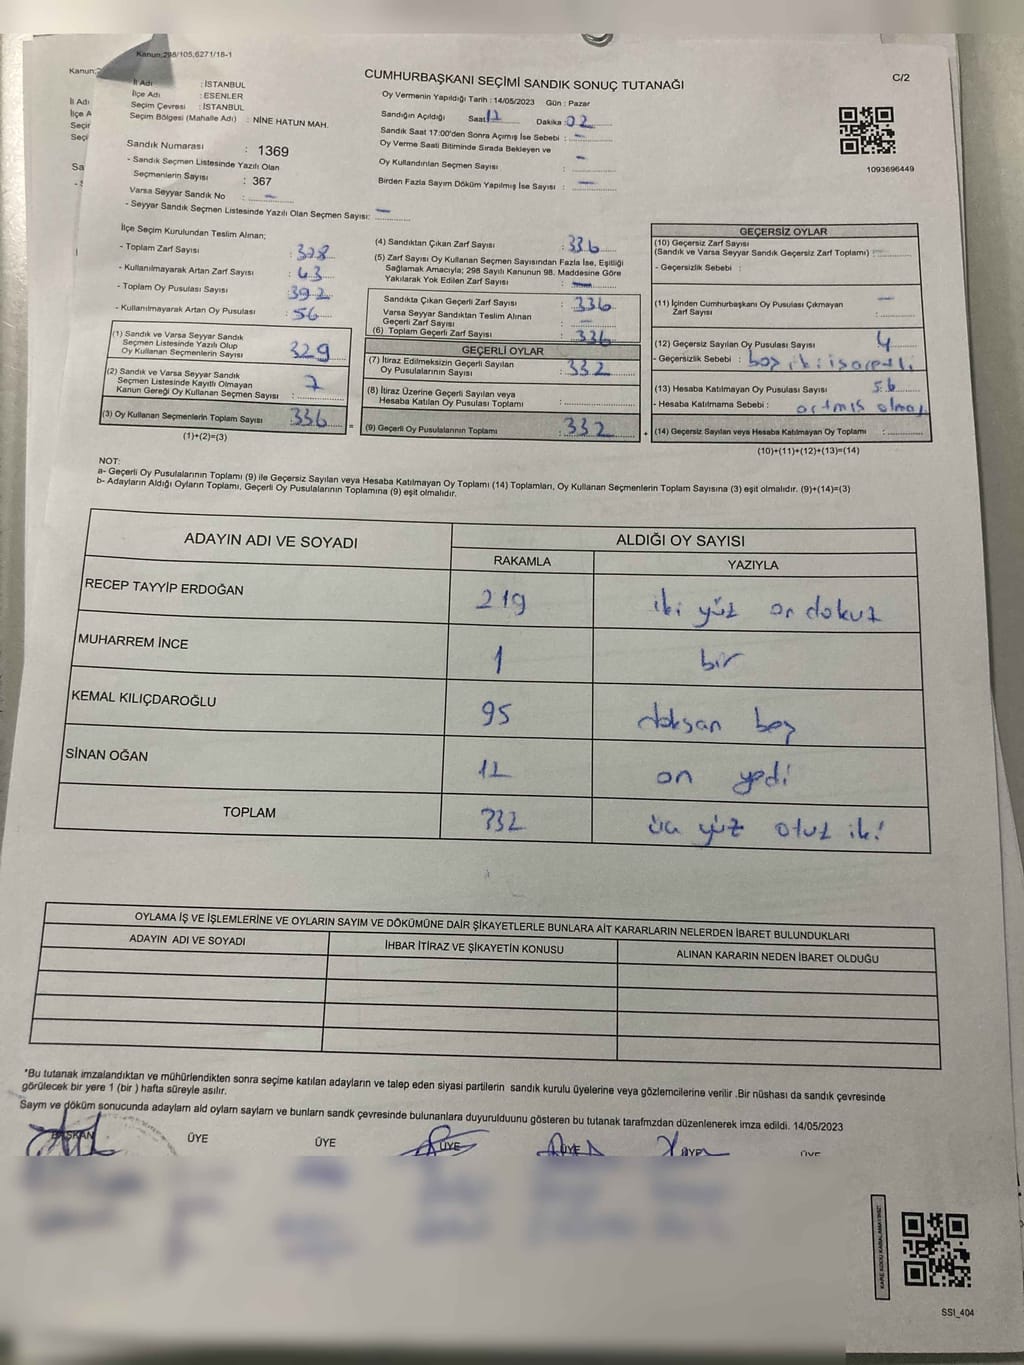 Kanun;298/105,6271/18-1
CUMHURBAŞKANI SEÇİMİ SANDIK SONUÇ TUTANAĞI
C/2
İl Adı : İSTANBUL
İlçe Adı : ESENLER
Seçim Çevresi : İSTANBUL
Seçim Bölgesi (Mahalle Adı) : NİNE HATUN MAH.
Sandık Numarası : 1369
- Sandık Seçmen Listesinde Yazılı Olan
Seçmenlerin Sayısı : 367
Varsa Seyyar Sandık No : -
- Seyyar Sandık Seçmen Listesinde Yazılı Olan Seçmen Sayısı: -
Oy Vermenin Yapıldığı Tarih : 14/05/2023 Gün : Pazar
Sandığın Açıldığı Saat: 17 Dakika: 02
Sandık Saat 17:00'den Sonra Açımış İse Sebebi : -
Oy Verme Saati Bitiminde Sırada Bekleyen ve
Oy Kullandırılan Seçmen Sayısı : -
Birden Fazla Sayım Döküm Yapılmış İse Sayısı : -
1093696449
İlçe Seçim Kurulundan Teslim Alınan;
- Toplam Zarf Sayısı :
- Kullanılmayarak Artan Zarf Sayısı : 43
- Toplam Oy Pusulası Sayısı : 392
- Kullanılmayarak Artan Oy Pusulası : 56
(1) Sandık ve Varsa Seyyar Sandık
Seçmen Listesinde Yazılı Olup
Oy Kullanan Seçmenlerin Sayısı : 329
(2) Sandık ve Varsa Seyyar Sandık
Seçmen Listesinde Kayıtlı Olmayan
Kanun Gereği Oy Kullanan Seçmen Sayısı : 7
(3) Oy Kullanan Seçmenlerin Toplam Sayısı : 336
(1)+(2)=(3)
(4) Sandıktan Çıkan Zarf Sayısı : 336
(5) Zarf Sayısı Oy Kullanan Seçmen Sayısından Fazla İse, Eşitliği
Sağlamak Amacıyla; 298 Sayılı Kanunun 98. Maddesine Göre
Yakılarak Yok Edilen Zarf Sayısı : -
Sandıkta Çıkan Geçerli Zarf Sayısı : 336
Varsa Seyyar Sandıktan Teslim Alınan
Geçerli Zarf Sayısı : -
(6) Toplam Geçerli Zarf Sayısı : 336
GEÇERLİ OYLAR
(7) İtiraz Edilmeksizin Geçerli Sayılan
Oy Pusulalarının Sayısı : 332
(8) İtiraz Üzerine Geçerli Sayılan veya
Hesaba Katılan Oy Pusulası Toplamı :
(9) Geçerli Oy Pusulalarının Toplamı : 332
GEÇERSİZ OYLAR
(10) Geçersiz Zarf Sayısı
(Sandık ve Varsa Seyyar Sandık Geçersiz Zarf Toplamı) :
- Geçersizlik Sebebi :
(11) İçinden Cumhurbaşkanı Oy Pusulası Çıkmayan
Zarf Sayısı : -
(12) Geçersiz Sayılan Oy Pusulası Sayısı : 4
- Geçersizlik Sebebi : boş
(13) Hesaba Katılmayan Oy Pusulası Sayısı : 56
- Hesaba Katılmama Sebebi : artmış
(14) Geçersiz Sayılan veya Hesaba Katılmayan Oy Toplamı :
(10)+(11)+(12)+(13)=(14)
NOT:
a- Geçerli Oy Pusulalarının Toplamı (9) ile Geçersiz Sayılan veya Hesaba Katılmayan Oy Toplamı (14) Toplamları, Oy Kullanan Seçmenlerin Toplam Sayısına (3) eşit olmalıdır. (9)+(14)=(3)
b- Adayların Aldığı Oyların Toplamı, Geçerli Oy Pusulalarının Toplamına (9) eşit olmalıdır.
ADAYIN ADI VE SOYADI ALDIĞI OY SAYISI
RAKAMLA YAZIYLA
RECEP TAYYİP ERDOĞAN 219 iki yüz on dokuz
MUHARREM İNCE 1 bir
KEMAL KILIÇDAROĞLU 95 doksan beş
SİNAN OĞAN 17 on yedi
TOPLAM 332 üç yüz otuz iki
OYLAMA İŞ VE İŞLEMLERİNE VE OYLARIN SAYIM VE DÖKÜMÜNE DAİR ŞİKAYETLERLE BUNLARA AİT KARARLARIN NELERDEN İBARET BULUNDUKLARI
ADAYIN ADI VE SOYADI İHBAR İTİRAZ VE ŞİKAYETİN KONUSU ALINAN KARARIN NEDEN İBARET OLDUĞU
*Bu tutanak imzalandıktan ve mühürlendikten sonra seçime katılan adayların ve talep eden siyasi partilerin sandık kurulu üyelerine veya gözlemcilerine verilir .Bir nüshası da sandık çevresinde
görülecek bir yere 1 (bir ) hafta süreyle asılır.
Saym ve döküm sonucunda adaylarn ald oylarn saylarn ve bunlarn sandk çevresinde bulunanlara duyurulduunu gösteren bu tutanak tarafmzdan düzenlenerek imza edildi. 14/05/2023
BAŞKAN ÜYE ÜYE ÜYE ÜYE ÜYE ÜYE
KARE KODU KARALAMAYINIZ!
SSI_404